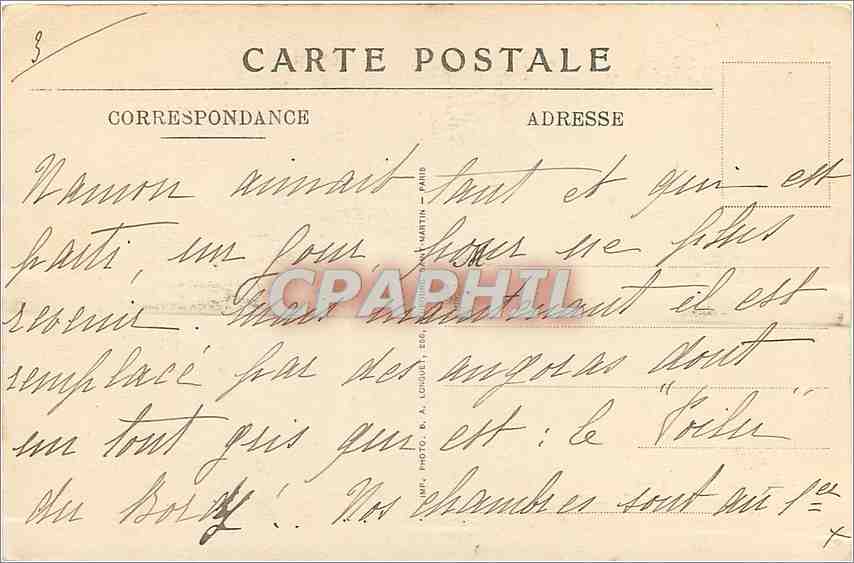 3
CARTE POSTALE
CORRESPONDANCE
ADRESSE
Namon aimait tant et qui est
parti, un jour, pour ne plus
revenir. Mais maintenant il est
remplacé par des angoras dont
un tout gris qui est : le "Poilu"
du Bord ! Nos chambres sont au 1er
x
IMP. PHOTO. B. A. LONGUET, 250, FAUBOURG SAINT-MARTIN — PARIS
CPAPHIL